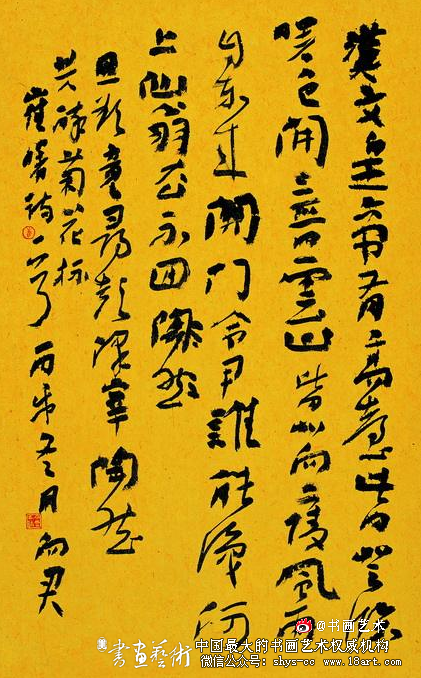 漢文皇帝有高臺此日登臨
曙色開三晉雲山皆北向二陵風雨
自東來開門令尹誰能識河
上仙翁去不回陶然
且欲尋彭澤宰陶然
共醉菊花杯
崔曙詩一首 丙冬月
@书画艺术
書畫藝術 中国最大的书画艺术权威机构
微信公众号: shys-cc www.18art.com